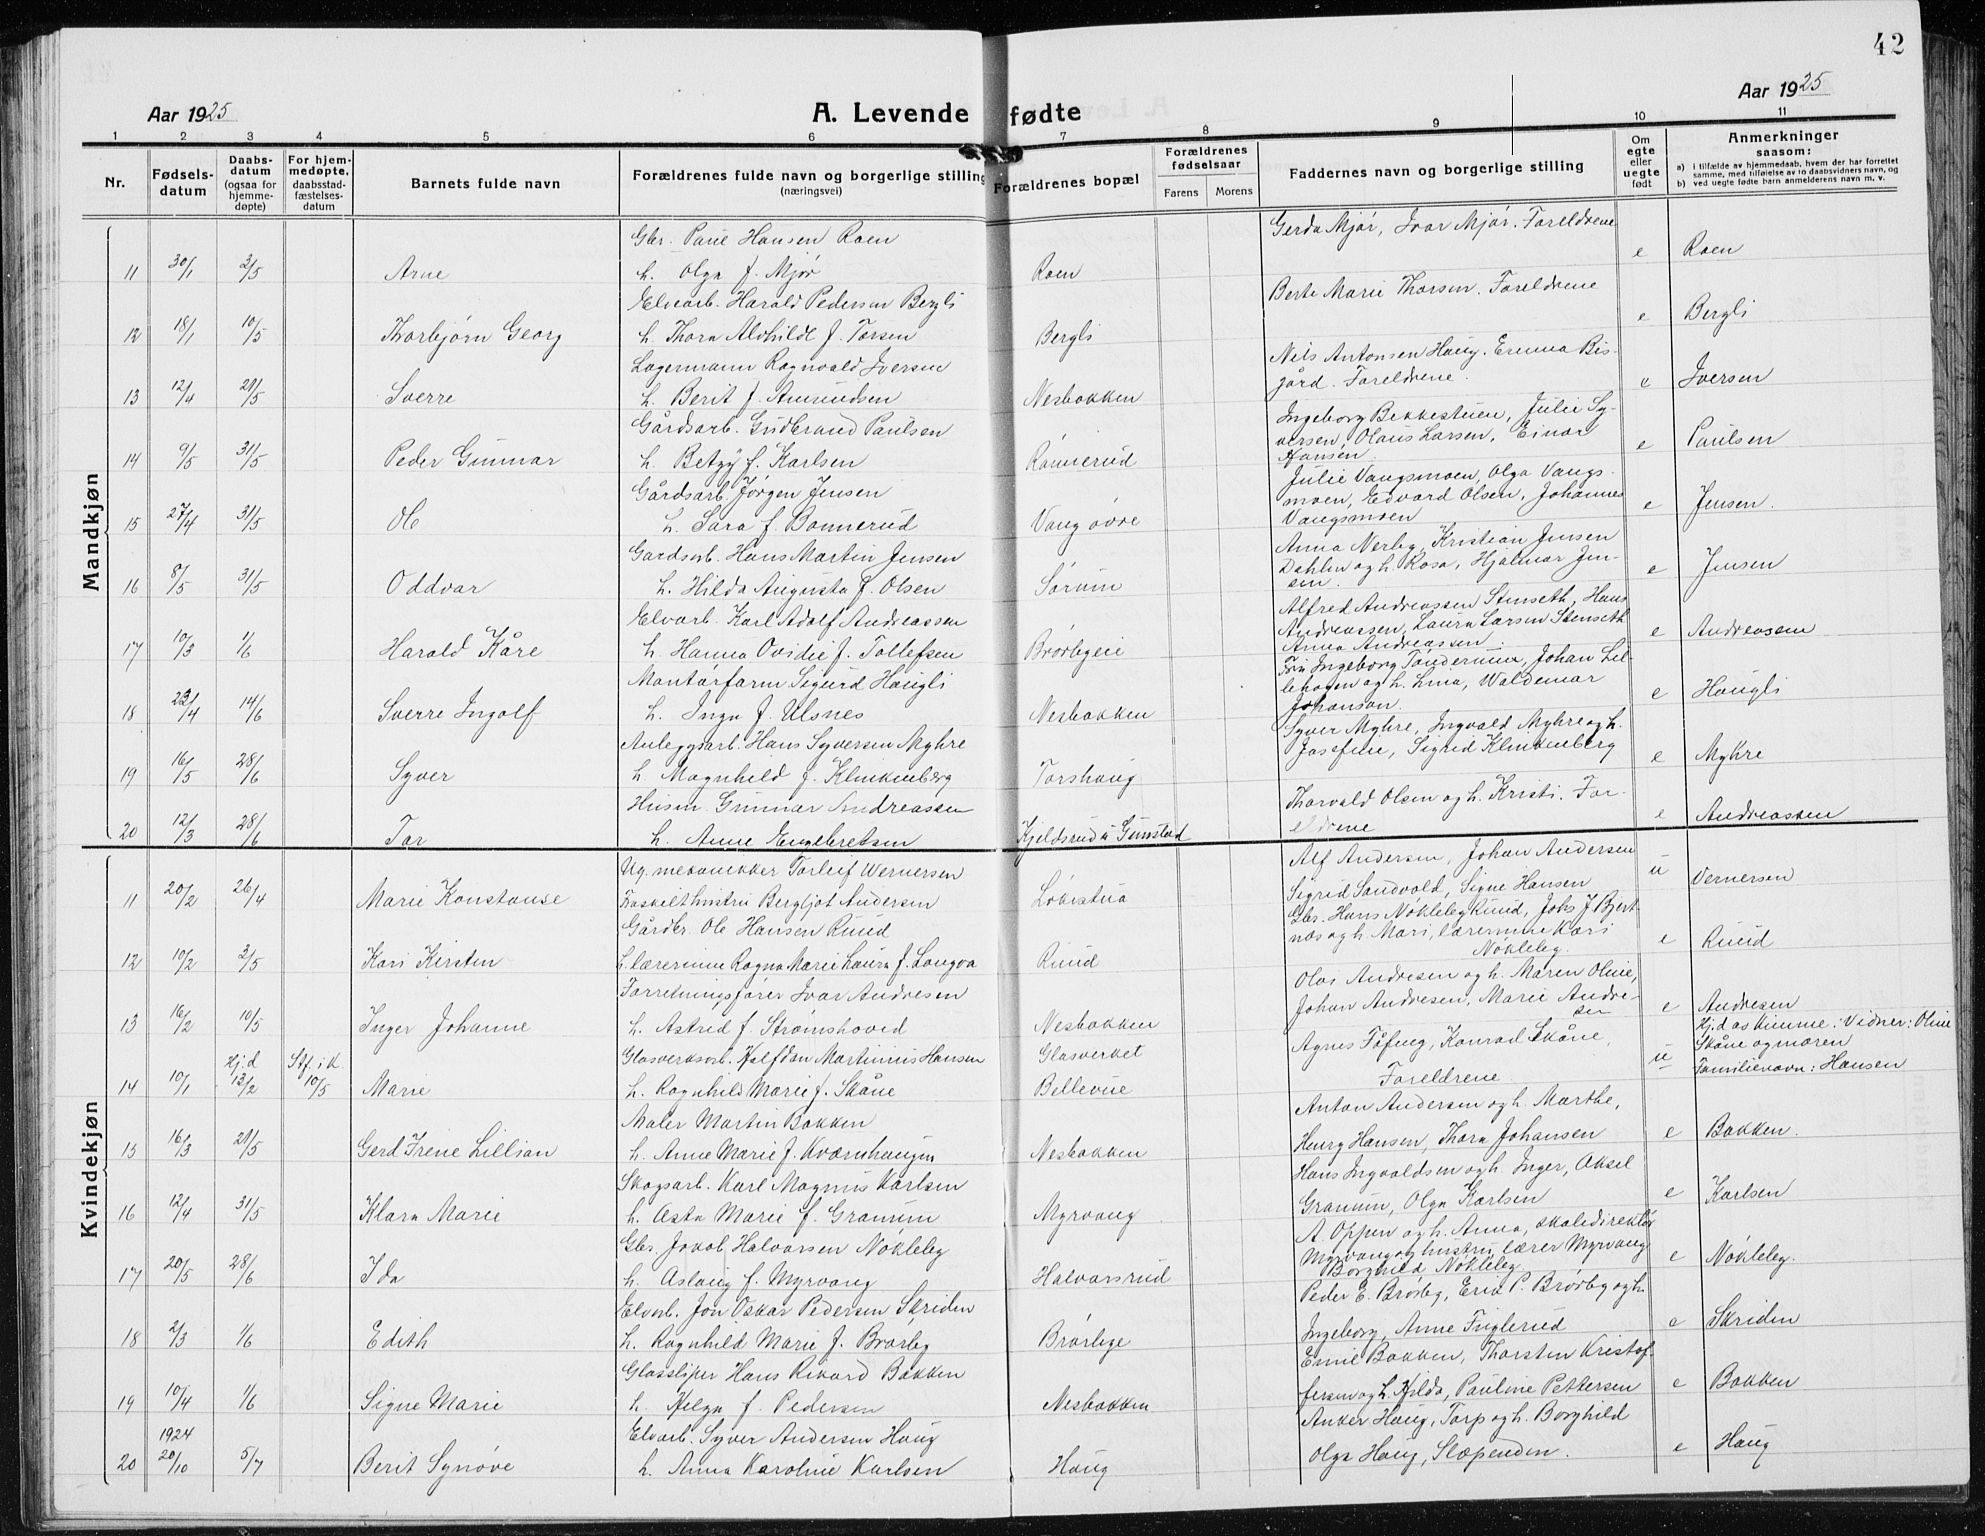 42
Aar 1925
A. Levende fødte
Aar 1925
1 2 3 4 5 6 7 8 9 10 11
Nr.
Fødsels-
datum
Daabs-
datum
(ogsaa for
hjemme-
døpte)
For hjem-
medøpte,
daabsstad-
fæstelses-
datum
Barnets fulde navn
Forældrenes fulde navn og borgerlige stilling
(næringsvei)
Forældrenes bopæl
Forældrenes
fødselsaar
Farens Morens
Faddernes navn og borgerlige stilling
Om
egte
eller
uegte
født
Anmerkninger
saasom:
a) i tilfælde av hjemmedaab, hvem der har forrettet
samme, med tilføielse av to daabsvidners navn, og
b) ved uegte fødte barn anmelderens navn m. v.
Mandkjøn
Gbr. Paul Hansen Roen Gerda Mjør, Ivar Mjør. Foreldrene
11 30/1 3/5 Arne h. Olga f. Mjør Roen e Roen
Elvearb. Harald Pedersen Bergli Berte Marie Thorsen. Foreldrene
12 18/1 10/5 Thorbjørn Georg h. Thora Alvhilde f. Torsen Bergli e Bergli
Lagermann Ragnvald Iversen Nils Antonsen Haug. Emma Bis-
13 12/4 21/5 Sverre h. Berit f. Amundsen Nesbakken gård. Foreldrene. e Iversen
Gårdsarb. Gudbrand Paulsen Ingeborg Bekkestuen, Julie Sy-
versen, Olaus Larsen, Einar
14 9/5 31/5 Peder Gunnar h. Betzy f. Karlsen Rønnerud Hansen. e Paulsen
Gårdsarb. Jørgen Jensen Julie Vangsmoen, Olga Vangs-
moen, Edvard Olsen, Johannes
15 27/4 31/5 Ole h. Sara f. Bonnerud Vang øvre Vangsmoen e Jensen.
Gardsarb. Hans Martin Jensen Anna Nerby, Kristian Jensen
Dahlen og h. Rosa, Hjalmar Jen-
16 8/5 31/5 Oddvar h. Hilda Augusta f. Olsen Sørum sen. e Jensen
Elvarb. Karl Adolf Andreassen Alfred Andreassen Stenseth, Hans
Andreassen, Laura Larsen Stenseth
17 10/3 1/6 Harald Kåre h. Hanna Ovidie f. Tollefsen Brørbyeie Anna Andreassen. e Andreassen
Montørform Sigurd Haugli Fru Ingeborg Tønderum, Johan Lil-
lehagen og h. Lina, Waldemar
18 22/4 14/6 Sverre Ingolf h. Inga f. Ulsnes Nesbakken Johanson. e Haugli
Anleggsarb. Hans Syversen Myhre Syver Myhre, Ingvald Myhre og h.
19 16/5 28/6 Syver h. Magnhild f. Klinkenberg Torshaug Josefine, Sigrid Klinkenberg e Myhre
Husm. Gunnar Andreassen Thorvald Olsen og h. Kristi. For-
20 12/3 28/6 Tor h. Anne Engebretsen Kjeldsrud u Gunstad eldrene e Andreassen
Kvindekjøn
Ug. mekanikker Torleif Wernersen Alf Andersen, Johan Andersen u
11 20/2 26/4 Marie Konstanse Fraskilt hustru Bergljot Andersen Løkestua Sigrid Sandvold, Signe Hansen Vernersen
Gårdbr. Ole Hansen Ruud Gbr. Hans Nøkleby Ruud, Johs J. Bjert-
næs og h. Mari, lærerinne Kari
12 10/2 3/5 Kari Kirsten h. lærerinne Ragna Marie Laura f. Langva Ruud Nøkleby. e Ruud
Forretningsfører Ivar Andresen Olas Andresen og h. Maren Oline,
13 16/2 10/5 Inger Johanne h. Astrid f. Strømshoved Nesbakken Johan Andresen, Marie Andre-
sen e Andresen
Hj.d Stf. i k. Glasverksarb. Halfdan Martinius Hansen Glasverket Agnes Fåfeng, Konrad Skåne, Hj.d av kimme. Vidner: Oline
Skåne og moren
14 10/1 13/2 10/5 Marie h. Ragnhild Marie f. Skåne Bellevue Foreldrene. u Familienavn: Hansen
Maler Martin Bakken Anton Andersen og h. Marthe,
15 16/3 21/5 Gerd Irene Lillian h. Anne Marie f. Kværnhaugen Nesbakken Henry Hansen, Thora Johansen e Bakken.
Skogsarb. Karl Magnus Karlsen Hans Ingvaldsen og h. Inger, Aksel
16 12/4 31/5 Klara Marie h. Asta Marie f. Granum Myrvang Granum, Olga Karlsen e Karlsen
Gbr. Jakob Halvorsen Nøkleby A. Oppen og h. Anna, skoledirektør
Myrvang og hustru, lærer Myrvang
17 20/5 28/6 Ida h. Aslaug f. Myrvang Halvorsrud Borghild Nøkleby e Nøkleby.
Elvarb. Jon Oskar Pedersen Skriden Peder E. Brørby, Erik P. Brørby og h.
18 2/3 1/6 Edith h. Ragnhild Marie f. Brørby Brørbye Ingeborg, Anne Fuglerud e Skriden
Glassliper Hans Rikard Bakken Emil Bakken, Thorsten Kristof-
19 10/4 1/6 Signe Marie h. Helga f. Pedersen Nesbakken fersen og h. Hilda, Pauline Pettersen e Bakken
1924 Elvarb. Syver Andersen Haug Anker Haug, Torp og h. Borghild
20 20/10 5/7 Berit Synøve h. Anna Karoline Karlsen Haug Olga Haug, Slæpenden. e Haug